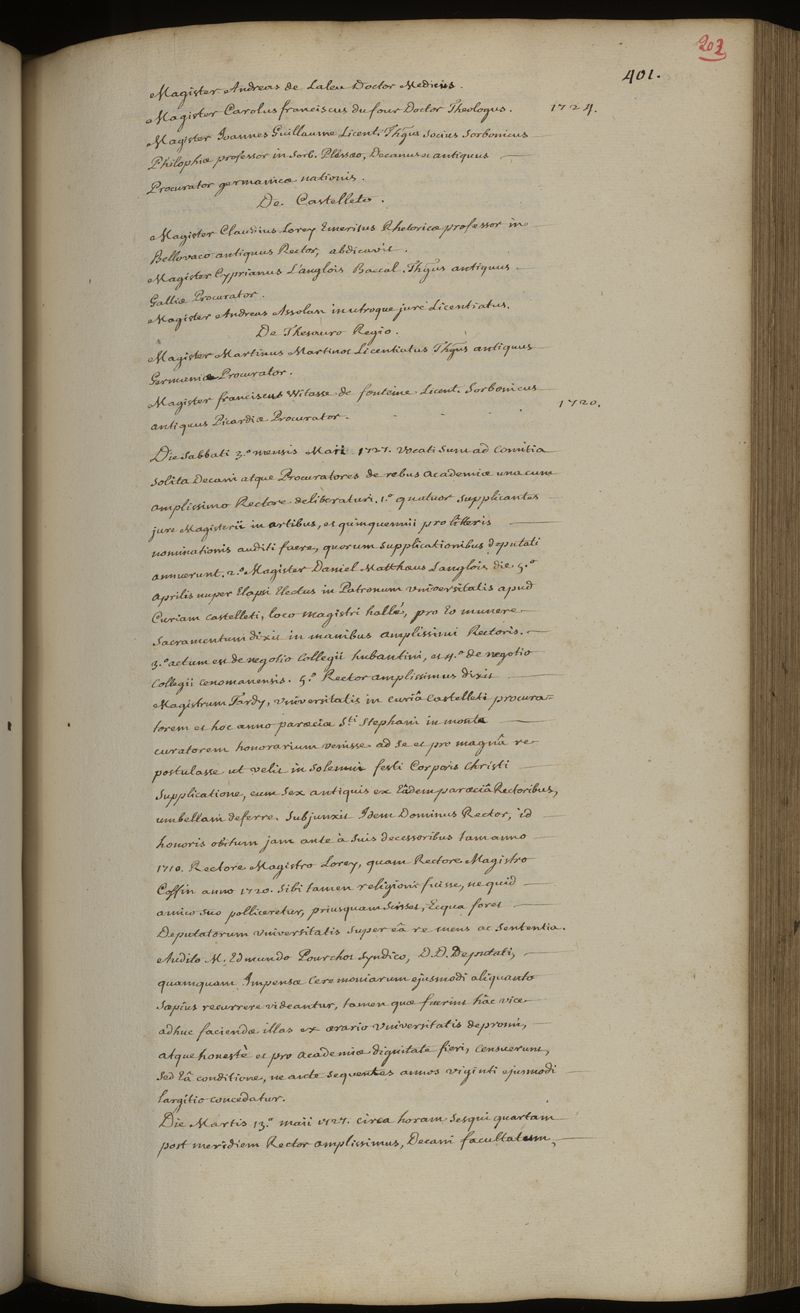 203
401.
Magister Andreas de Laleu Doctor Medicus.
Magister Carolus franciscus du four Doctor Theologus. 1724.
Magister Joannes Guillaume Licent. Thgus Socius Sorbonicus
Philophiæ professor in Sorb. Plessæo, Decanus et antiquus
Procurator germanicæ nationis.
De Castelleto.
Magister Claudius Lorey Emeritus Rhetoricæ professor in
Bellovaco antiquus Rector, abdicavit.
Magister Cyprianus L'anglois Baccal. Thgus antiquus
Galliæ Procurator.
Magister Andreas Assolan in utroque jure Licentiatus.
De Thesauro Regio.
Magister Martinus Martinot Licentiatus Thgus antiquus
Germaniæ Procurator.
Magister franciscus Witasse de fonteine Licent. Sorbonicus
antiquus Picardiæ Procurator. 1720.
Die Sabbati 3.º mensis Maii 1727. vocati Sunt ad Comitia
Solita Decani atque Procuratores de rebus academiæ una cum
amplissimo Rectore deliberaturi. 1.º quatuor Supplicantes
jure Magisterii in artibus, et quinquennii pro litteris
nominationis auditi fuere, quorum Supplicationibus deputati
annuerunt. 2.º Magister Daniel Matthæus Langlois die 5.º
aprilis nuper Elapsi Electus in Patronum universitatis apud
Curiam Castelleti, loco magistri hallé, pro Eo munere
Sacramentum dixit in manibus amplissimi Rectoris.
3.º actum est de negotio Collegii hubantini, et 4.º de negotio
Collegii cenomanensis. 5.º Rector amplissimus dixit
Magistrum Tardy, universitatis in curiâ Castelleti procura=
torem et hoc anno parœciæ Sti Stephani in monte
curatorem honorarium venisse ad se et pro magnâ re
postulasse ut velit in Solemni festi Corporis Christi
Supplicatione, cum Sex antiquis ex Eâdem parœciâ Rectoribus,
umbellam deferre. Subjunxit Idem Dominus Rector, id
honoris obitum jam ante à Suis decessoribus tam anno
1710. Rectore Magistro Lorey, quam Rectore Magistro
Coffin anno 1720. Sibi tamen religioni fuisse, ne quid
amico suo polliceretur, priusquam Scisset, Ecqua foret
Deputatorum universitatis Super eâ re mens ac Sententia.
Audito M. Edmundo Pourchot Syndico, D.D. Deputati,
quamquam Impensæ Ceremoniarum ejusmodi aliquanto
Sæpius recurrere videantur, tamen quæ fuerint hâc vice
adhuc faciendæ illas ex ærario universitatis depromi,
atque honestè et pro academiæ dignitate fieri, censuerunt,
Sed Eâ conditione, ne ante sequentes annos viginti ejusmodi
largitio concedatur.
Die Martis 13.º maii 1727. circa horam Sesqui quartam
post meridiem Rector amplissimus, Decani facultatum,